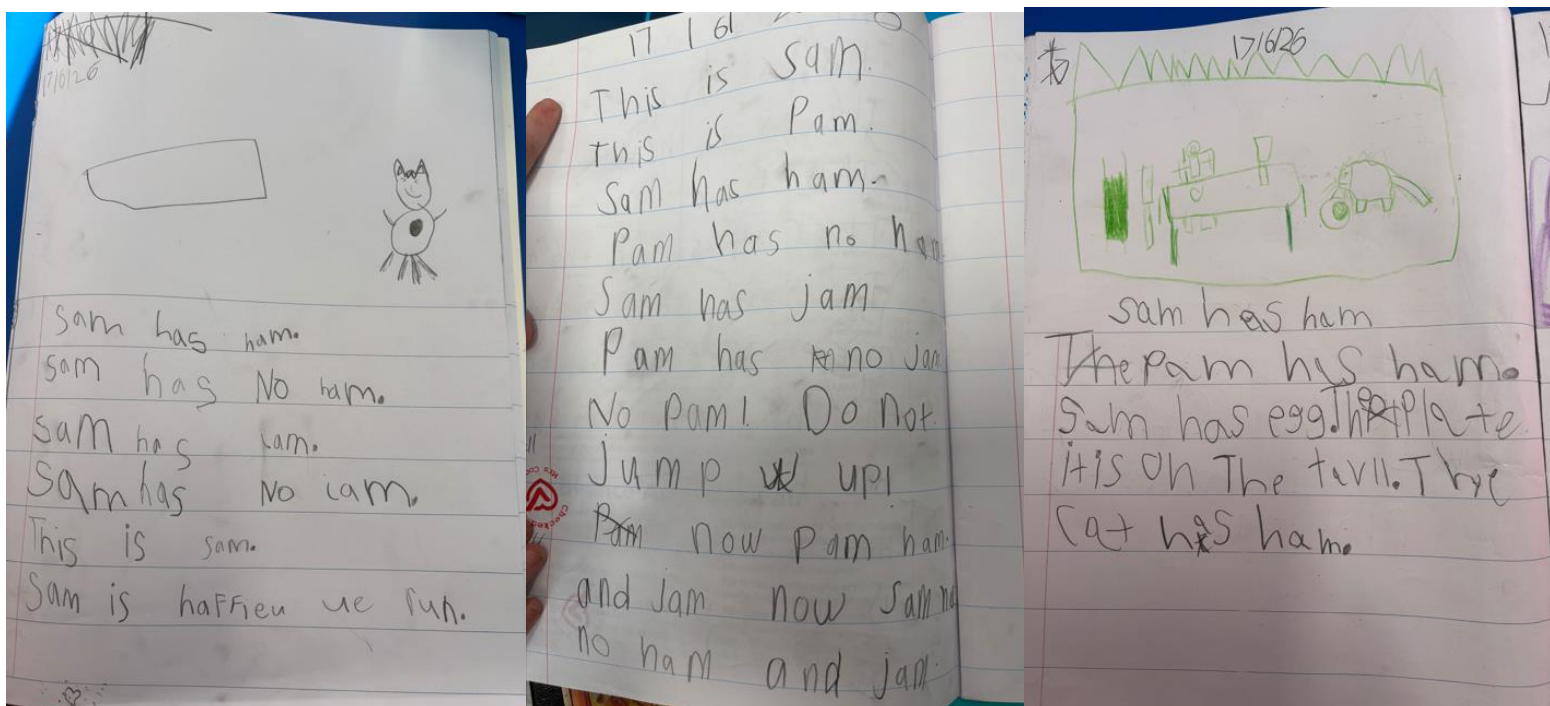 17/6/26
Sam has ham.
Sam has No ham.
Sam has cam.
Sam has No cam.
This is Sam.
Sam is haffieu ue fun.
17 / 6/
This is Sam.
This is Pam.
Sam has ham.
Pam has no ham
Sam has jam
Pam has no jam
No Pam! Do Not.
jump up!
now Pam ham.
and Jam now Sam
no ham and jam.
17/6/26
Sam has ham
The Pam has ham.
Sam has egg. The Plate
it is on The tavll. Thye
cat has ham.